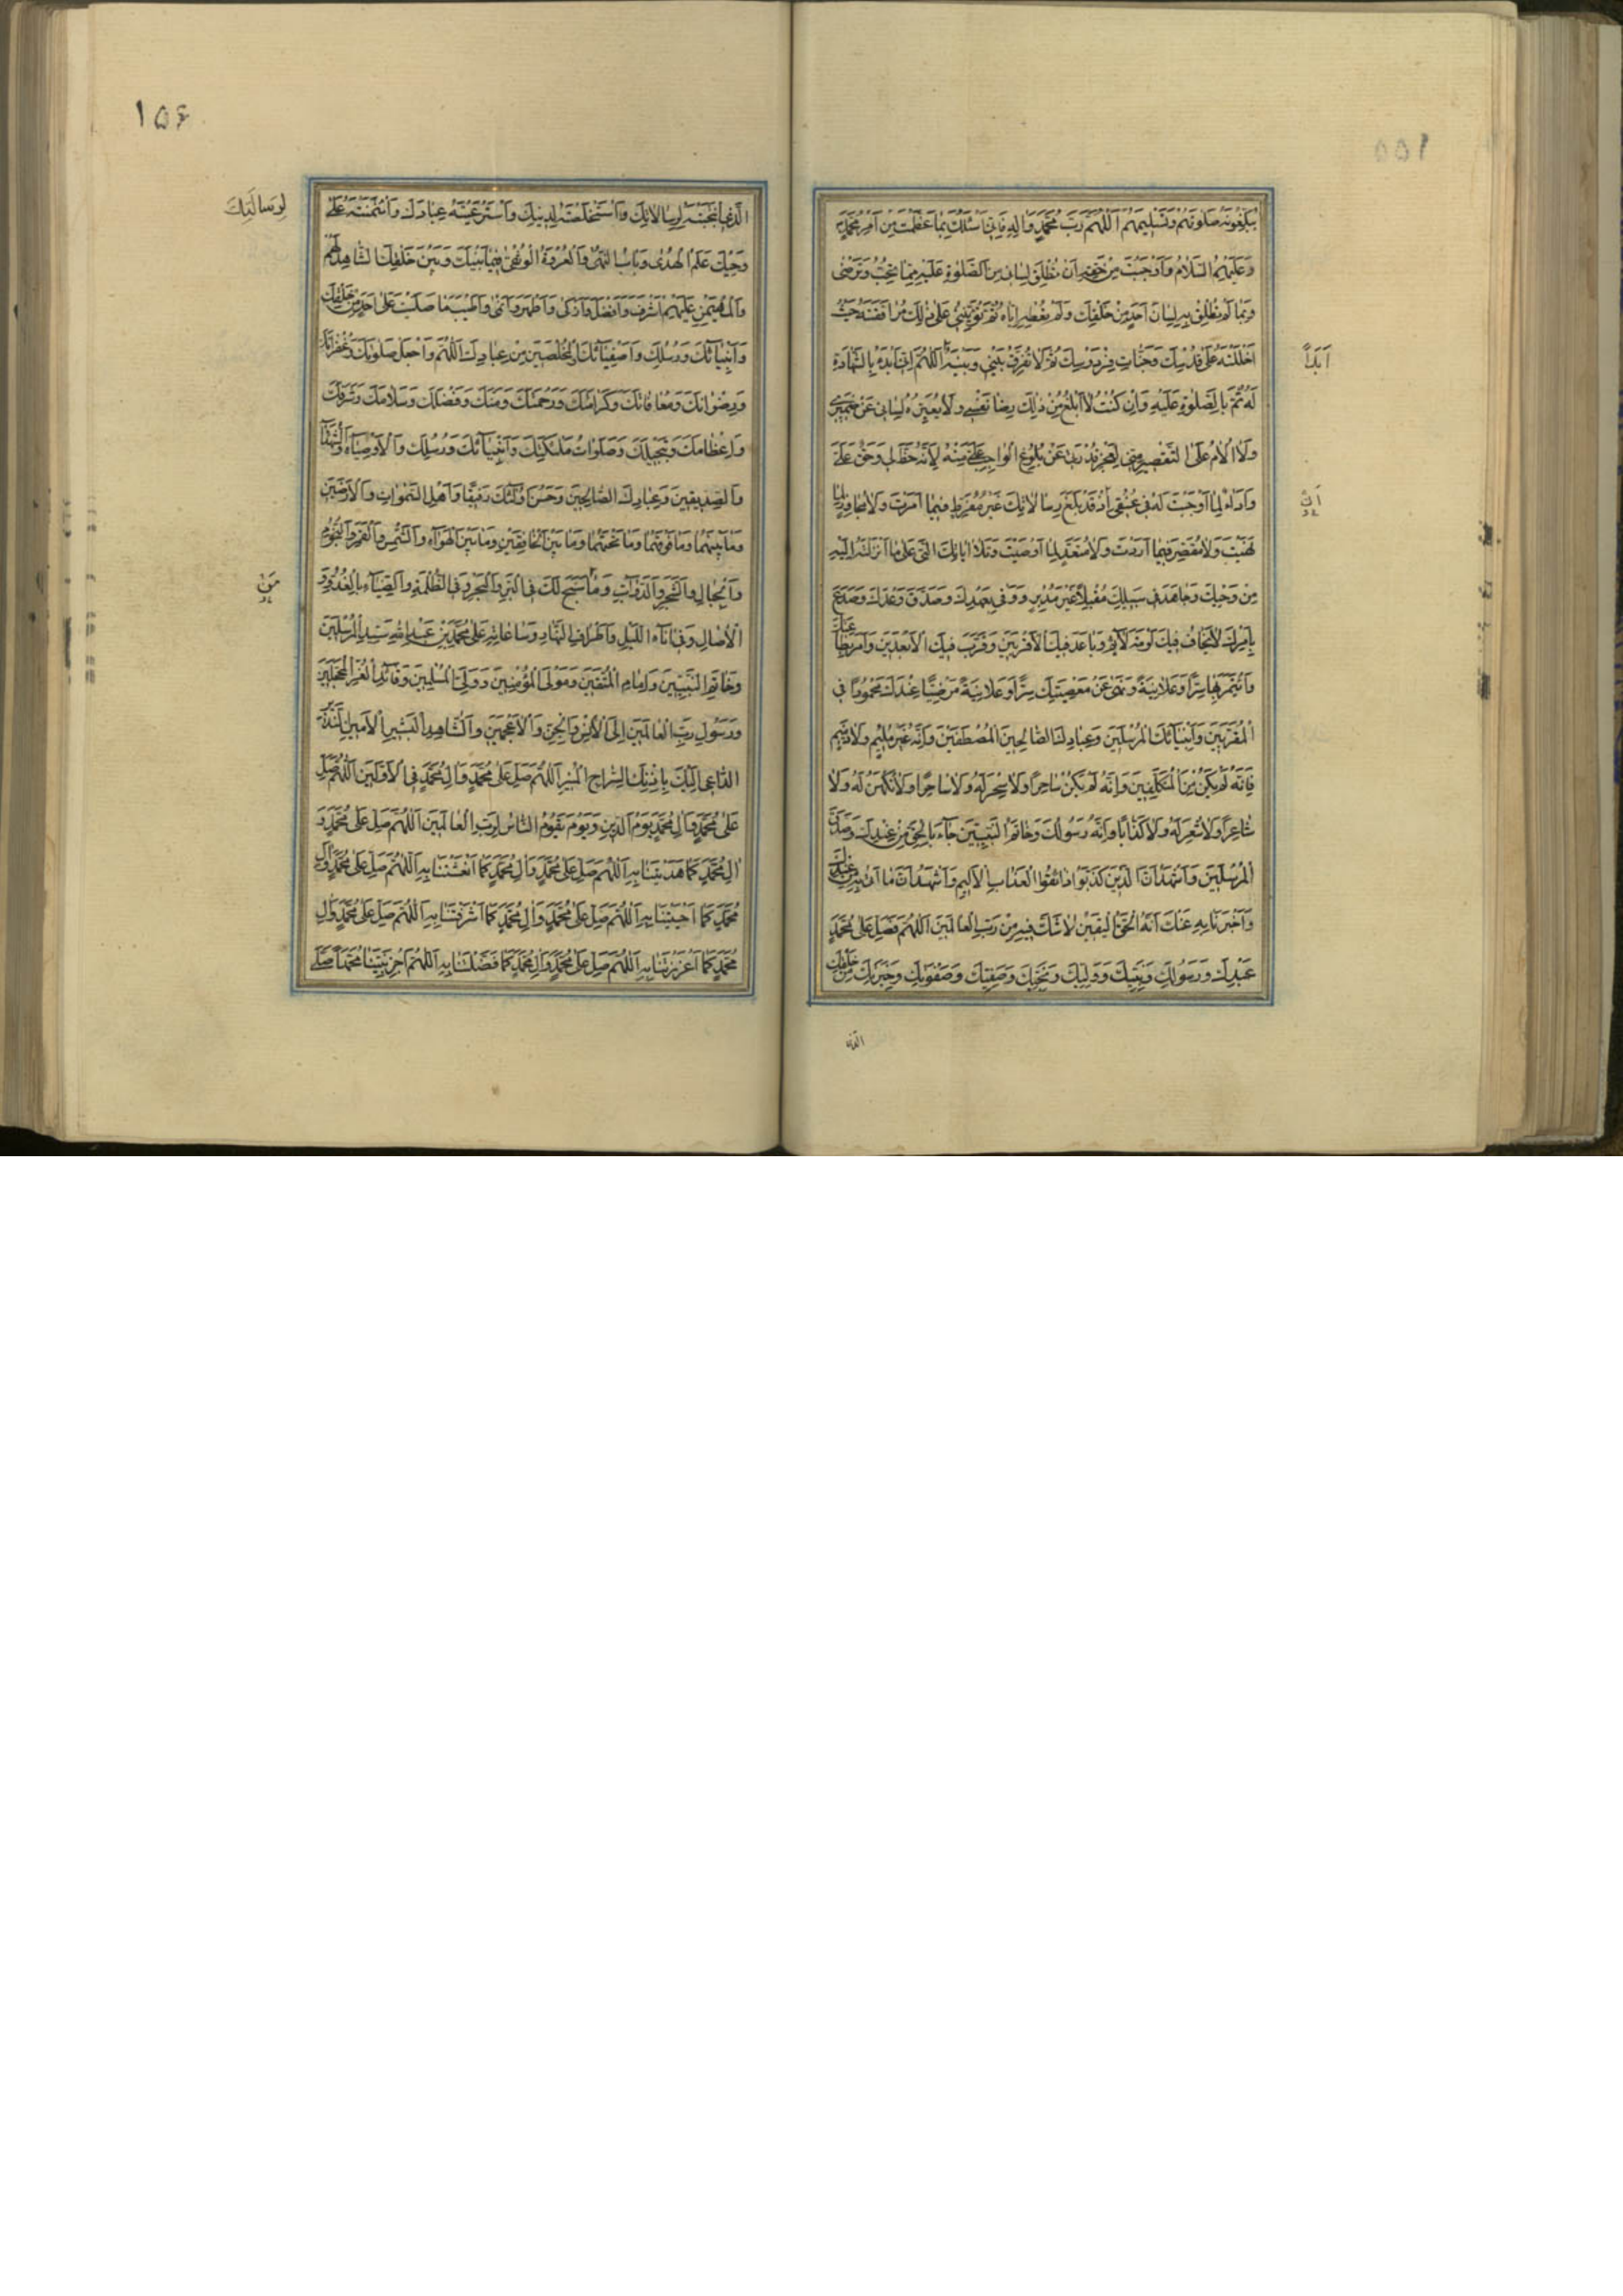 يُبَلِّغُونَهُ صَلٰوتَهُمْ وَتَسْلِيمَهُمْ اَللّٰهُمَّ رَبَّ مُحَمَّدٍ وَاٰلِهِ فَاِنّى اَسْئَلُكَ بِمَا عَظَّمْتَ مِنْ اَمْرِ مُحَمَّدٍ
وَعَلَيْهِمُ السَّلَامُ وَاَوْجَبْتَ مِنْ حَقِّهِ اَنْ تُطْلِقَ لِسَانى مِنَ الصَّلٰوةِ عَلَيْهِ بِمَا تُحِبُّ وَتَرْضٰى
وَبِمَا لَمْ تُطْلِقْ بِهِ لِسَانَ اَحَدٍ مِنْ خَلْقِكَ وَلَمْ تُعْطِهِ اِيَّاهُ ثُمَّ تُؤْتِيَنى عَلٰى ذٰلِكَ مُرَافَقَتَهُ حَيْثُ
اَحْلَلْتَهُ عَلٰى قُدْسِكَ وَجَنَّاتِ فِرْدَوْسِكَ ثُمَّ لَا تُفَرِّقْ بَيْنى وَبَيْنَهُ اَللّٰهُمَّ اِنّى اَبْدَءُ بِالشَّهَادَةِ
اَبَداً
لَهُ ثُمَّ بِالصَّلٰوةِ عَلَيْهِ وَاِنْ كُنْتُ لَا اَبْلُغُ مِنْ ذٰلِكَ رِضَا نَفْسى وَلَا يُعَبِّرُهُ لِسَانى عَنْ ضَميرى
وَلَا اُلَامُ عَلَى التَّقْصِيرِ مِنّى لِعَجْزِ قُدْرَتى عَنْ بُلُوغِ الْوَاجِبِ عَلَىَّ مِنْهُ لِاَنَّهُ حَظٌّ لى وَحَقٌّ عَلَىَّ
وَاَدَاءٌ لِمَا اَوْجَبْتَ لَهُ فى عُنُقى اَنْ قَدْ بَلَّغَ رِسَالَاتِكَ غَيْرَ مُفَرِّطٍ فيمَا اَمَرْتَ وَلَا مُجَاوِزٍ لِمَا
نَهَيْتَ وَلَا مُقَصِّرٍ فيمَا اَرَدْتَ وَلَا مُتَعَدٍّ لِمَا اَوْصَيْتَ وَتَلَا اٰيَاتِكَ الَّتى عَلٰى مَا اَنْزَلْتَهُ اِلَيْهِ
مِنْ وَحْيِكَ وَجَاهَدَ فى سَبيلِكَ مُقْبِلًا غَيْرَ مُدْبِرٍ وَوَفٰى بِعَهْدِكَ وَصَدَّقَ وَعْدَكَ وَصَدَعَ
بِاَمْرِكَ لَا يَخَافُ فيكَ لَوْمَةَ لَائِمٍ وَبَاعَدَ فيكَ الْاَقْرَبينَ وَقَرَّبَ فيكَ الْاَبْعَدينَ وَاَمَرَ بِطَاعَتِكَ
وَائْتَمَرَ بِهَا سِرّاً وَعَلَانِيَةً وَنَهٰى عَنْ مَعْصِيَتِكَ سِرّاً وَعَلَانِيَةً مَرْضِيّاً عِنْدَكَ مَحْمُوداً فى
الْمُقَرَّبينَ وَاَنْبِيَائِكَ الْمُرْسَلينَ وَعِبَادِكَ الصَّالِحينَ الْمُصْطَفَيْنَ وَاَنَّهُ غَيْرُ مُليمٍ وَلَا ذَميمٍ
فَاِنَّهُ لَمْ يَكُنْ مِنَ الْمُتَكَلِّفينَ وَاَنَّهُ لَمْ يَكُنْ سَاحِراً وَلَا سُحِرَ لَهُ وَلَا شَاعِراً وَلَا تُكُهِّنَ لَهُ وَلَا
شَاعِراً وَلَا شُعِرَ لَهُ وَلَا كَذَّاباً وَاَنَّهُ رَسُولُكَ وَخَاتَمُ النَّبِيّينَ جَاءَ بِالْحَقِّ مِنْ عِنْدِكَ وَصَدَّقَ
الْمُرْسَلينَ وَاَشْهَدُ اَنَّ الَّذينَ كَذَّبُوهُ ذَائِقُوا الْعَذَابِ الْاَليمِ وَاَشْهَدُ اَنَّ مَا اَتٰى بِهِ مِنْ عِنْدِكَ
وَاَخْبَرَنَا بِهِ عَنْكَ اَنَّهُ الْحَقُّ الْيَقينُ لَا شَكَّ فيهِ مِنْ رَبِّ الْعَالَمينَ اَللّٰهُمَّ فَصَلِّ عَلٰى مُحَمَّدٍ
عَبْدِكَ وَرَسُولِكَ وَنَبِيِّكَ وَوَلِيِّكَ وَنَجِيِّكَ وَصَفِيِّكَ وَصَفْوَتِكَ وَخِيَرَتِكَ مِنْ خَلْقِكَ
الَّذى
١٥٦
الَّذِى انْتَجَبْتَهُ لِرِسَالَاتِكَ وَاسْتَخْلَصْتَهُ لِدينِكَ وَاسْتَرْعَيْتَهُ عِبَادَكَ وَائْتَمَنْتَهُ عَلٰى
لِرِسَالَتِكَ
وَحْيِكَ عَلَمِ الْهُدٰى وَبَابِ النُّهٰى وَالْعُرْوَةِ الْوُثْقٰى فيمَا بَيْنَكَ وَبَيْنَ خَلْقِكَ الشَّاهِدِ لَهُمْ
وَالْمُهَيْمِنِ عَلَيْهِمْ اَشْرَفَ وَاَفْضَلَ وَاَزْكٰى وَاَطْهَرَ وَاَنْمٰى وَاَطْيَبَ مَا صَلَّيْتَ عَلٰى اَحَدٍ مِنْ خَلْقِكَ
وَاَنْبِيَائِكَ وَرُسُلِكَ وَاَصْفِيَائِكَ الْمُخْلَصينَ مِنْ عِبَادِكَ اَللّٰهُمَّ وَاجْعَلْ صَلَوٰتِكَ وَغُفْرَانَكَ
وَرِضْوَانَكَ وَمُعَافَاتَكَ وَكَرَامَتَكَ وَرَحْمَتَكَ وَمَنَّكَ وَفَضْلَكَ وَسَلَامَكَ وَشَرَفَكَ
وَاِعْظَامَكَ وَتَبْجيلَكَ وَصَلَوَاتِ مَلٰئِكَتِكَ وَاَنْبِيَائِكَ وَرُسُلِكَ وَالْاَوْصِيَاءِ وَالشُّهَدَاءِ
وَالصِّدّيقينَ وَعِبَادِكَ الصَّالِحينَ وَحَسُنَ اُولٰئِكَ رَفيقاً وَاَهْلِ السَّمٰوَاتِ وَالْاَرَضينَ
وَمَا بَيْنَهُمَا وَمَا فَوْقَهُمَا وَمَا تَحْتَهُمَا وَمَا بَيْنَ الْخَافِقَيْنِ وَمَا بَيْنَ الْهَوَاءِ وَالشَّمْسِ وَالْقَمَرِ وَالنُّجُومِ
وَالْجِبَالِ وَالشَّجَرِ وَالدَّوَابِّ وَمَا سَبَّحَ لَكَ فِى الْبَرِّ وَالْبَحْرِ وَفِى الظُّلْمَةِ وَالضِّيَاءِ بِالْغُدُوِّ وَ
الْاٰصَالِ وَفى اٰنَاءِ اللَّيْلِ وَاَطْرَافِ النَّهَارِ وَسَاعَاتِهِ عَلٰى مُحَمَّدِ بْنِ عَبْدِ اللّٰهِ سَيِّدِ الْمُرْسَلينَ
وَخَاتَمِ النَّبِيّينَ وَاِمَامِ الْمُتَّقينَ وَمَوْلَى الْمُؤْمِنينَ وَوَلِىِّ الْمُسْلِمينَ وَقَائِدِ الْغُرِّ الْمُحَجَّلينَ
وَرَسُولِ رَبِّ الْعَالَمينَ اِلَى الْاِنْسِ وَالْجِنِّ وَالْاَعْجَمينَ وَالشَّاهِدِ الْبَشيرِ الْاَمينِ النَّذيرِ
الدَّاعى اِلَيْكَ بِاِذْنِكَ السِّرَاجِ الْمُنيرِ اَللّٰهُمَّ صَلِّ عَلٰى مُحَمَّدٍ وَاٰلِ مُحَمَّدٍ فِى الْاَوَّلينَ اَللّٰهُمَّ صَلِّ
عَلٰى مُحَمَّدٍ وَاٰلِ مُحَمَّدٍ يَوْمَ الدّينِ وَيَوْمَ يَقُومُ النَّاسُ لِرَبِّ الْعَالَمينَ اَللّٰهُمَّ صَلِّ عَلٰى مُحَمَّدٍ وَ
اٰلِ مُحَمَّدٍ كَمَا هَدَيْتَنَا بِهِ اَللّٰهُمَّ صَلِّ عَلٰى مُحَمَّدٍ وَاٰلِ مُحَمَّدٍ كَمَا اَنْعَشْتَنَا بِهِ اَللّٰهُمَّ صَلِّ عَلٰى مُحَمَّدٍ وَاٰلِ
مُحَمَّدٍ كَمَا اَحْيَيْتَنَا بِهِ اَللّٰهُمَّ صَلِّ عَلٰى مُحَمَّدٍ وَاٰلِ مُحَمَّدٍ كَمَا شَرَّفْتَنَا بِهِ اَللّٰهُمَّ صَلِّ عَلٰى مُحَمَّدٍ وَاٰلِ
مُحَمَّدٍ كَمَا اَعْزَزْتَنَا بِهِ اَللّٰهُمَّ صَلِّ عَلٰى مُحَمَّدٍ وَاٰلِ مُحَمَّدٍ كَمَا فَضَّلْتَنَا بِهِ اَللّٰهُمَّ اجْزِ نَبِيَّنَا مُحَمَّداً صَلَّى